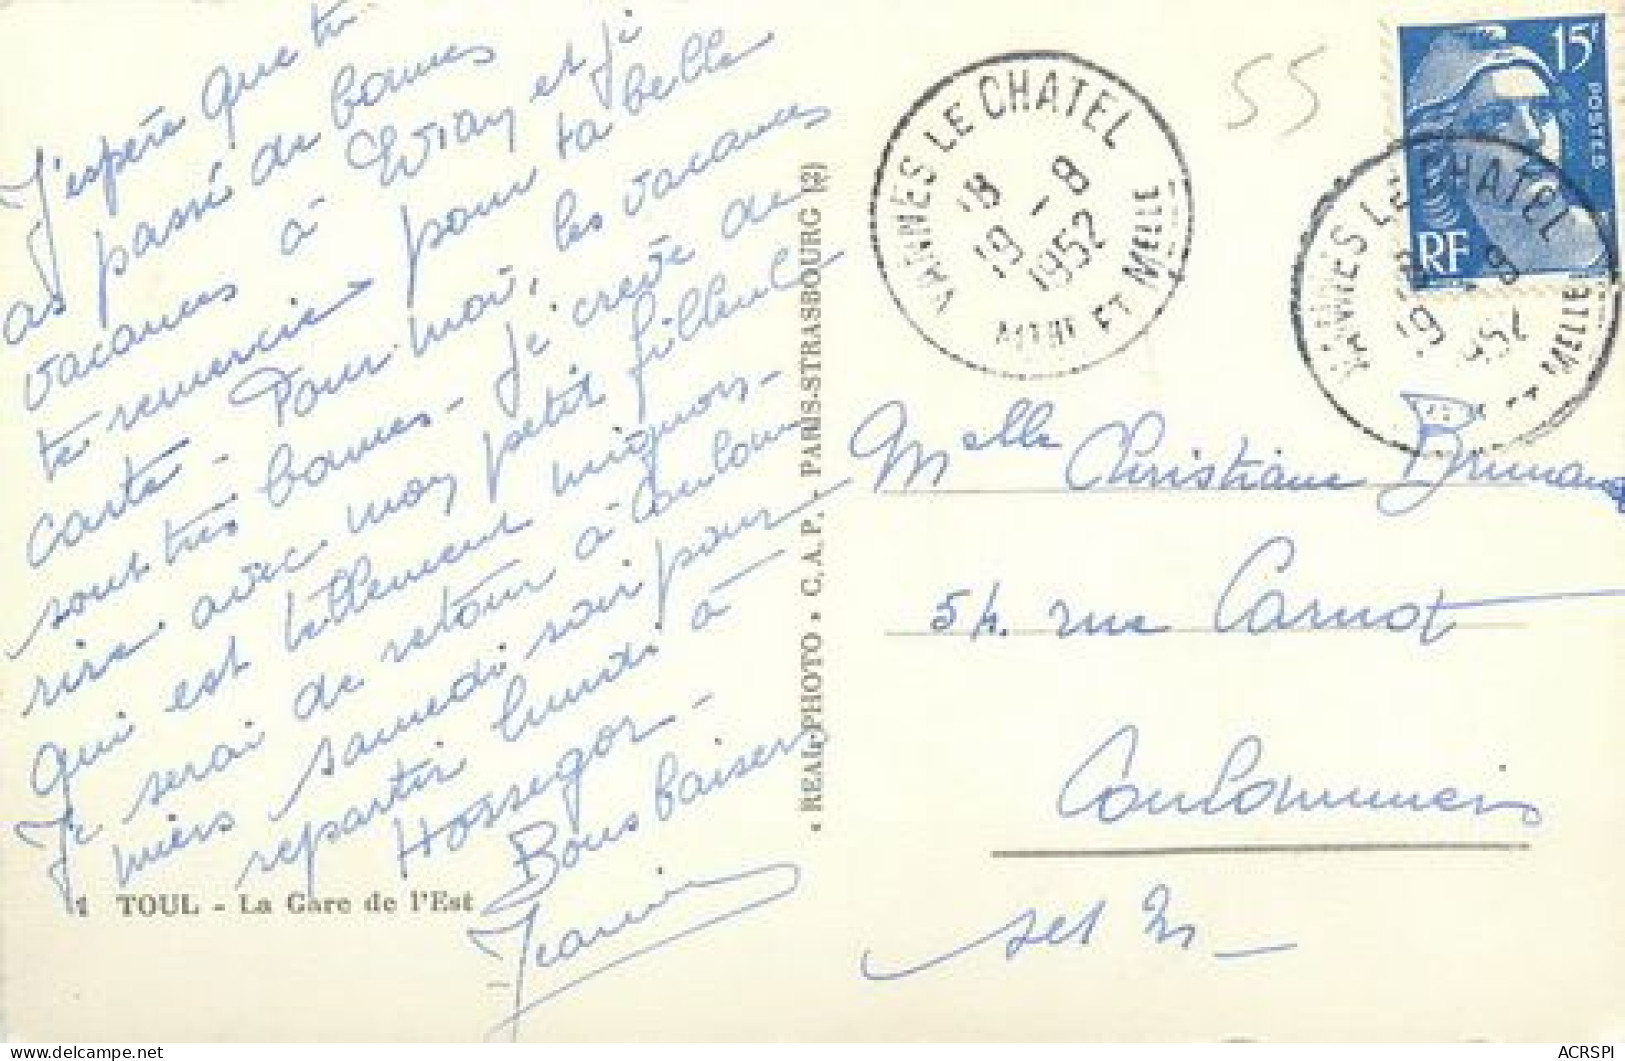 J'espère que tu
as passé de bonnes
vacances à et je
te remercie pour ta belle
carte - Pour moi, les vacances
sont très bonnes - Je crève de
rire avec mon petit filleul
qui est tellement mignon -
Je serai de retour à Coulom
miers samedi soir pour
repartir lundi à
Hossegor -
Bons baisers
Jeannine
1 TOUL - La Gare de l'Est
« REAL-PHOTO » C.A.P. PARIS-STRASBOURG (2)
VANNES LE CHATEL
18
19 - 8
1952
MTHE ET MELLE
55
15F
POSTES
RF
VANNES LE CHATEL
18
19 - 8
1952
MELLE
Melle Christiane
54 rue Carnot
Coulommiers
set M -
ACRSPI